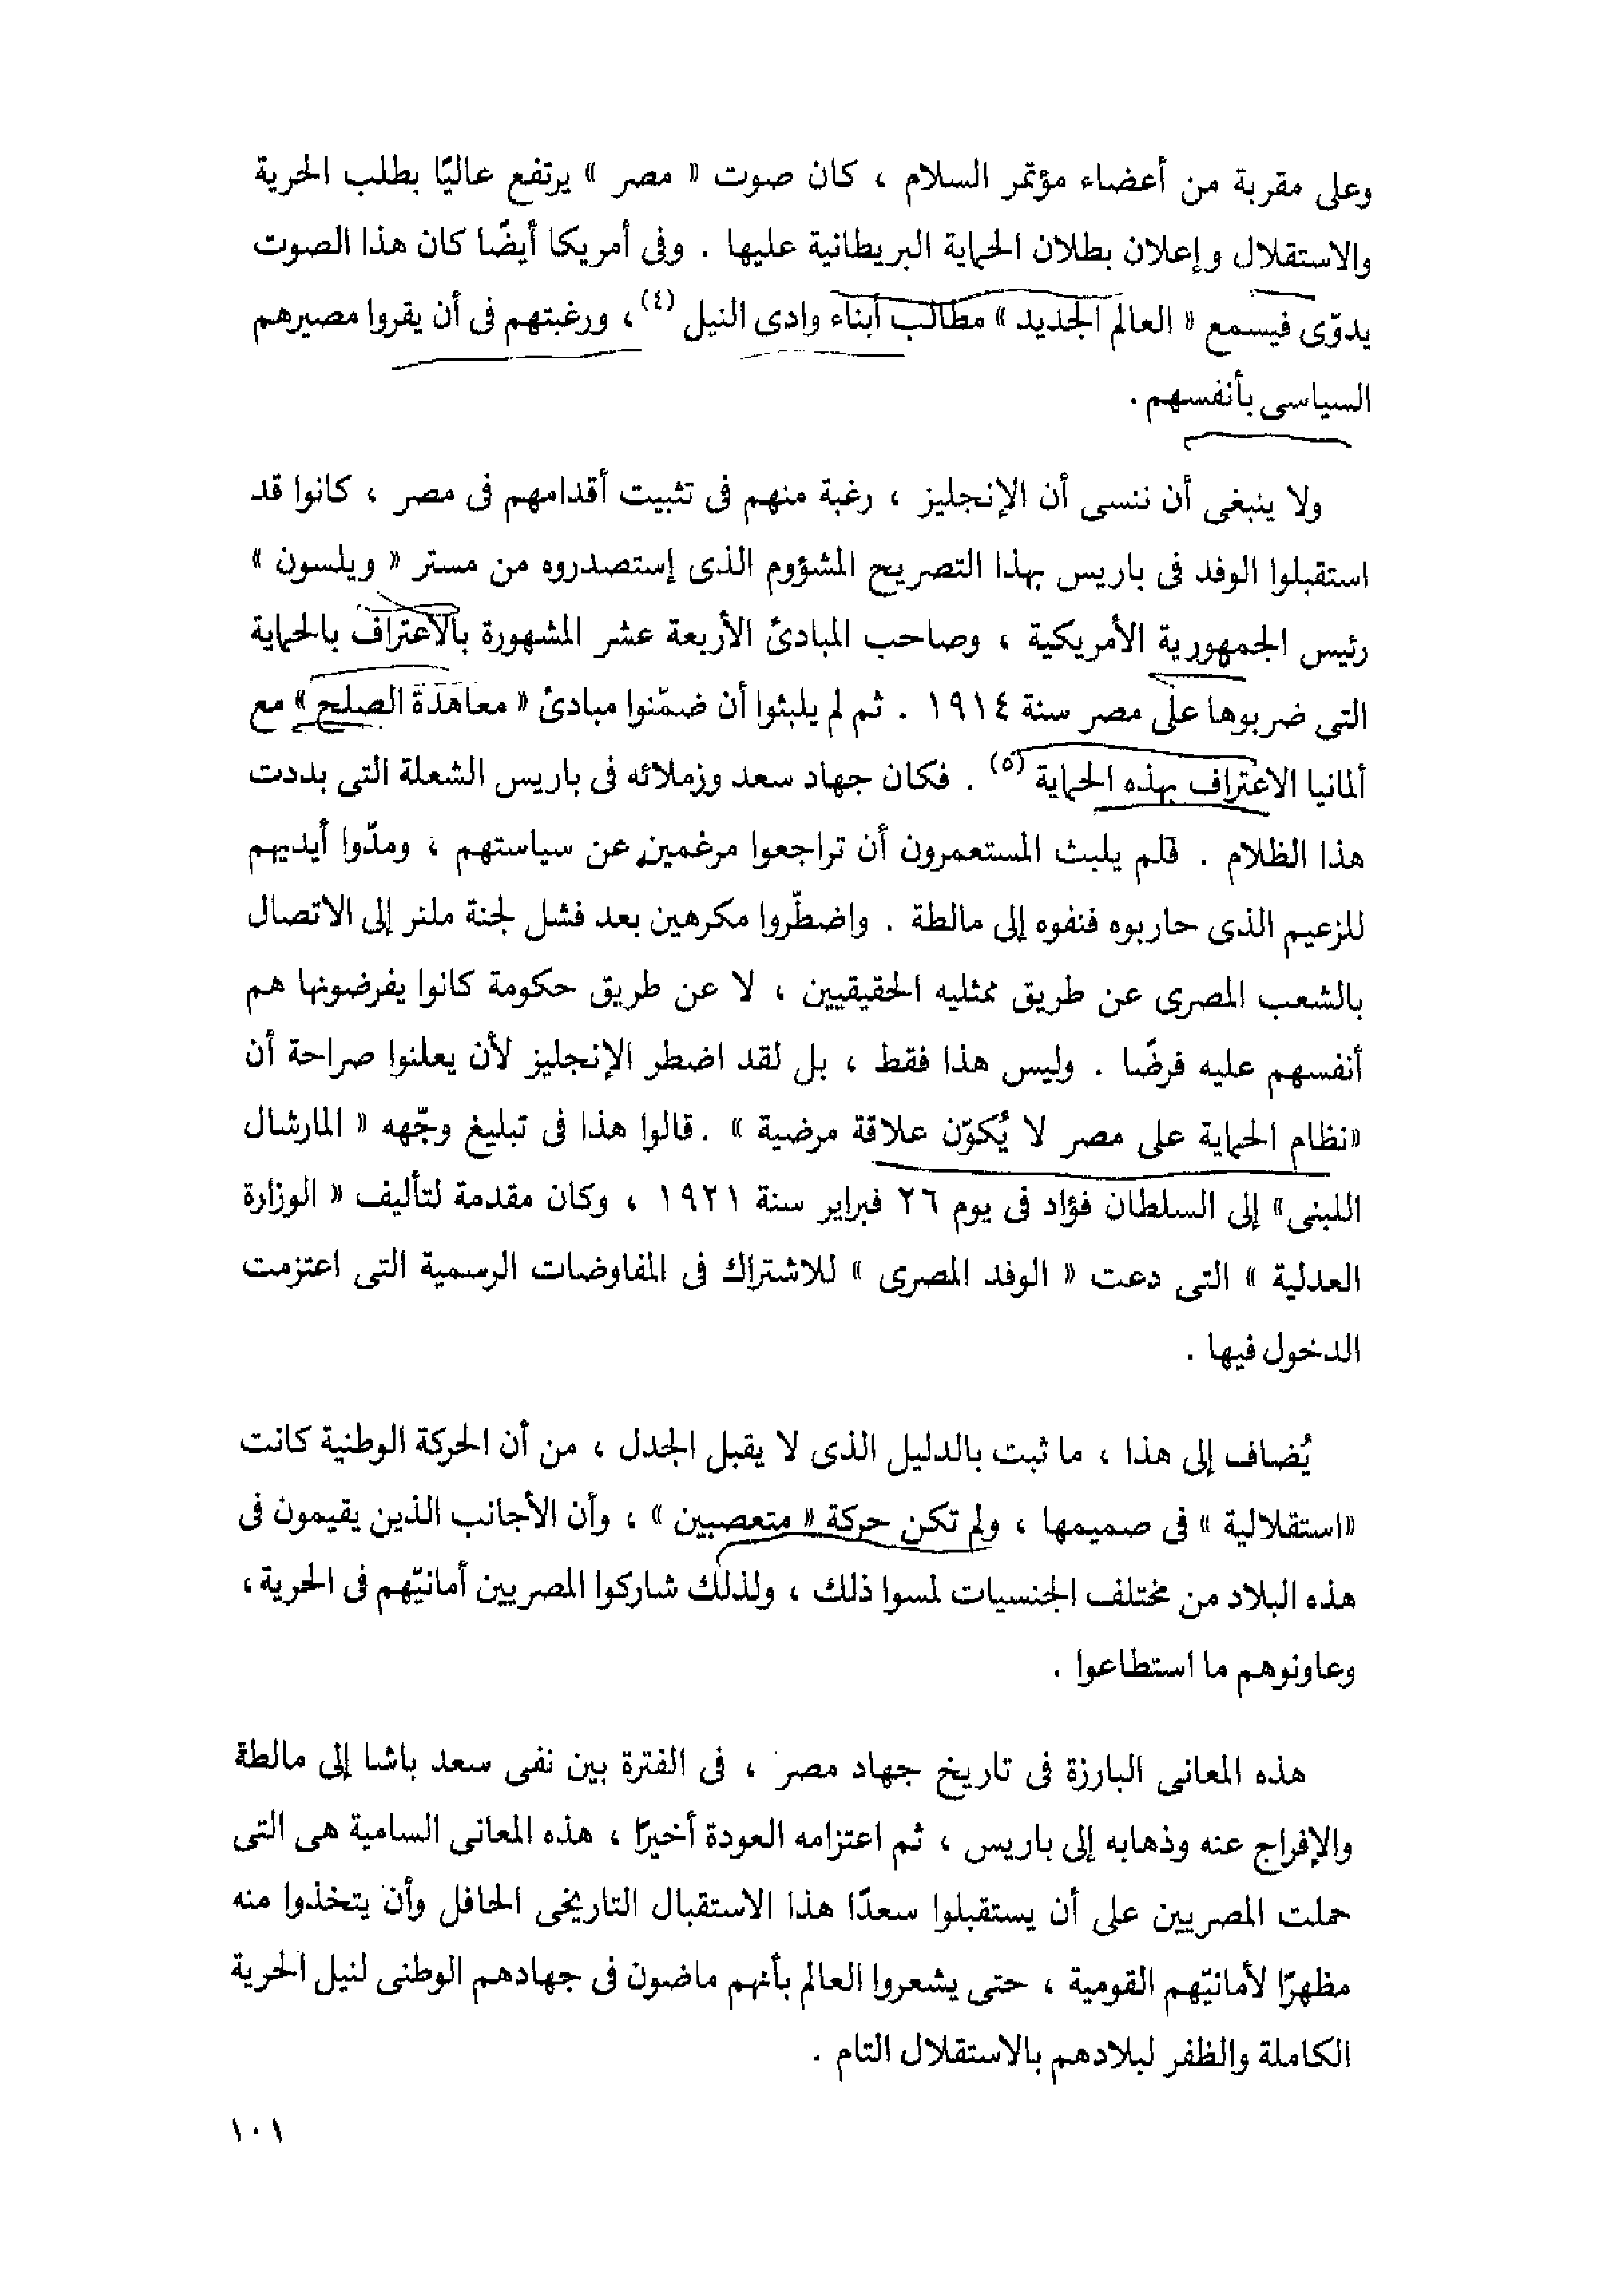 وعلى مقربة من أعضاء مؤتمر السلام ، كان صوت « مصر » يرتفع عاليًا بطلب الحرية
والاستقلال وإعلان بطلان الحماية البريطانية عليها . وفى أمريكا أيضًا كان هذا الصوت
يدوّى فيسمع « العالم الجديد » مطالب أبناء وادى النيل (٤)، ورغبتهم فى أن يقروا مصيرهم
السياسى بأنفسهم .
ولا ينبغى أن ننسى أن الإنجليز ، رغبة منهم فى تثبيت أقدامهم فى مصر ، كانوا قد
استقبلوا الوفد فى باريس بهذا التصريح المشؤوم الذى إستصدروه من مستر « ويلسون »
رئيس الجمهورية الأمريكية ، وصاحب المبادئ الأربعة عشر المشهورة بالاعتراف بالحماية
التى ضربوها على مصر سنة ١٩١٤ . ثم لم يلبثوا أن ضمّنوا مبادئ « معاهدة الصلح » مع
ألمانيا الاعتراف بهذه الحماية (٥) . فكان جهاد سعد وزملائه فى باريس الشعلة التى بددت
هذا الظلام . فلم يلبث المستعمرون أن تراجعوا مرغمين عن سياستهم ، ومدّوا أيديهم
للزعيم الذى حاربوه فنفوه إلى مالطة . واضطّروا مكرهين بعد فشل لجنة ملنر إلى الاتصال
بالشعب المصرى عن طريق ممثليه الحقيقيين ، لا عن طريق حكومة كانوا يفرضونها هم
أنفسهم عليه فرضًا . وليس هذا فقط ، بل لقد اضطر الإنجليز لأن يعلنوا صراحة أن
«نظام الحماية على مصر لا يُكوّن علاقة مرضية » . قالوا هذا فى تبليغ وجّهه « المارشال
اللبنى» إلى السلطان فؤاد فى يوم ٢٦ فبراير سنة ١٩٢١ ، وكان مقدمة لتأليف « الوزارة
العدلية » التى دعت « الوفد المصرى » للاشتراك فى المفاوضات الرسمية التى اعتزمت
الدخول فيها .
يُضاف إلى هذا ، ما ثبت بالدليل الذى لا يقبل الجدل ، من أن الحركة الوطنية كانت
«استقلالية » فى صميمها ، ولم تكن حركة « متعصبين » ، وأن الأجانب الذين يقيمون فى
هذه البلاد من مختلف الجنسيات لمسوا ذلك ، ولذلك شاركوا المصريين أمانيّهم فى الحرية ،
وعاونوهم ما استطاعوا .
هذه المعانى البارزة فى تاريخ جهاد مصر ، فى الفترة بين نفى سعد باشا إلى مالطة
والإفراج عنه وذهابه إلى باريس ، ثم اعتزامه العودة أخيرًا ، هذه المعانى السامية هى التى
حملت المصريين على أن يستقبلوا سعدًا هذا الاستقبال التاريخى الحافل وأن يتخذوا منه
مظهرًا لأمانيّهم القومية ، حتى يشعروا العالم بأنهم ماضون فى جهادهم الوطنى لنيل الحرية
الكاملة والظفر لبلادهم بالاستقلال التام .
١٠١